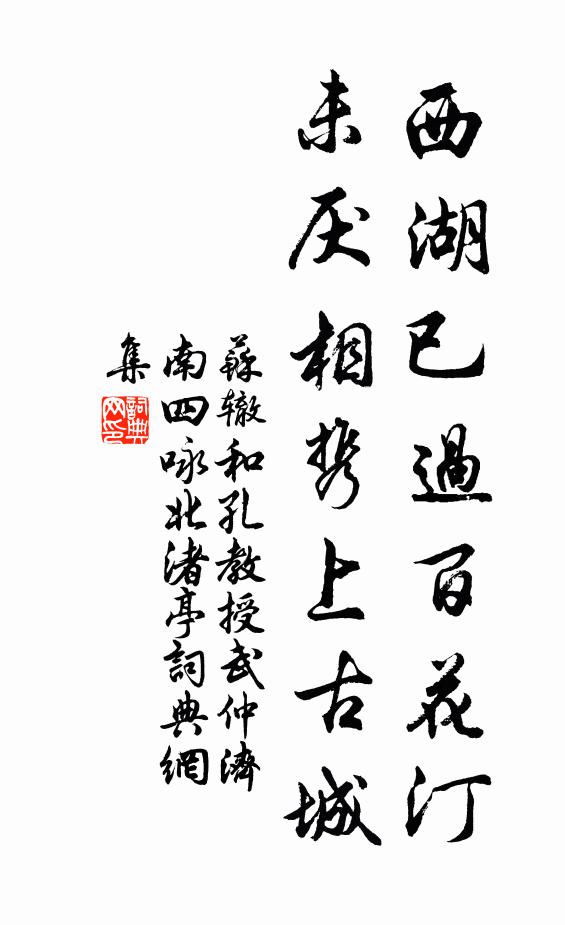 西湖已過百花汀
未厌相携上古城
蘇辙和孔教授武仲濟
南四咏北渚亭詞典網
集
詞典網印